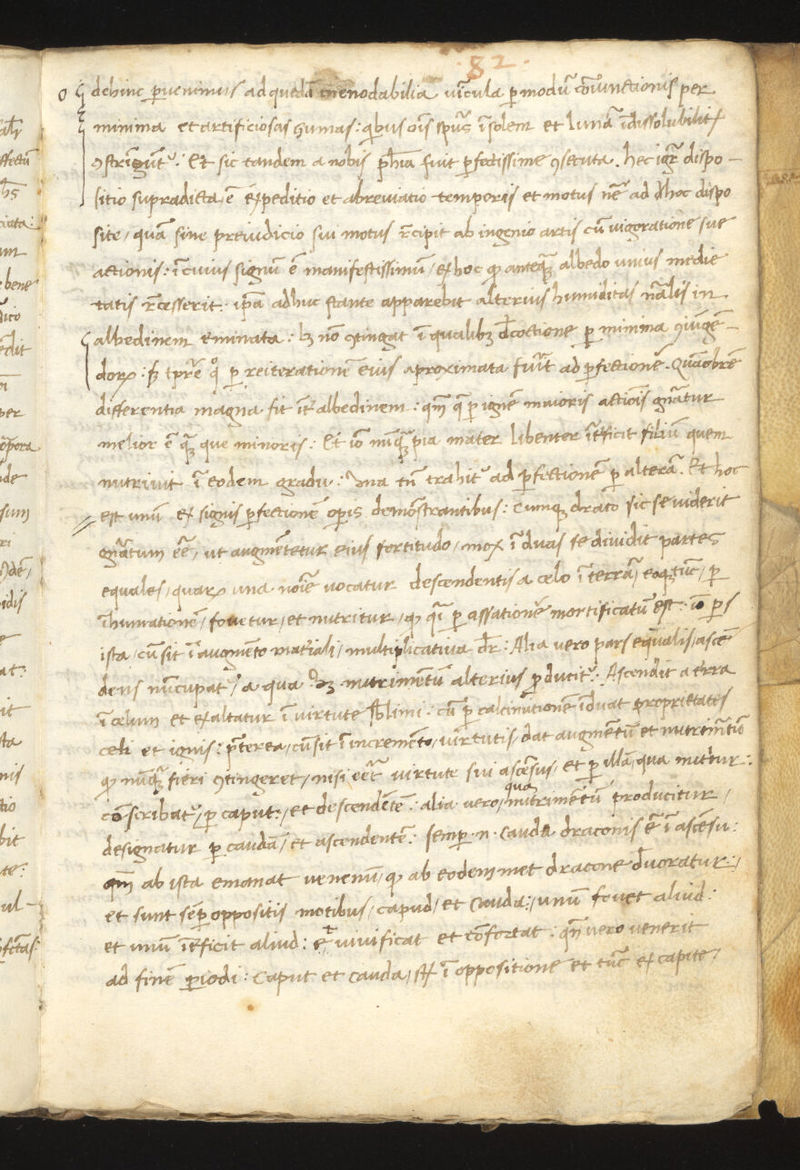 82.
dehinc ꝑvenimus ad quedā inenodabilia vīcula ꝑ modū cōiūnctionis per
minima et artificiosas humas: qbus oīs spūs ī solem et lunā īdissolubilitr
ꝯstrīgūt᷑. Et sic tandem a nobis phīa fuit ꝑfectissime ꝯsecuta. hec igr̄ dispo-
sitio supradicta ē expeditio et abreviatio temporis et motus nr̄e ad dhoc dispo
site, quā sine preiudicio sui motus r̄cipit ab ingenio artis cū vigoratione sue
actionis: ī cuius signū ē manifestissimū, ex hoc qp anteqꝫ albedo unius medie
tatis r̄cesserit: ip̄a adhuc stante apparebit alterius humiditas nālis in
albedinem eminata: lꝫ nō ꝯtingat ī qualibꝫ dcoctione ꝑ minima ꝯiūgēn-
doꝝ: sꝫ ꝑ reiterationē eius aproximata fuīt ad ꝑfectionē. Quāobrē
differentia magna fit īt᷑ albedinem: qm̄ q̄ ꝑ ignē maioris actiōis gn̄atur
melior ē qꝫ que minoris: Et iō nūqꝫ pia mater libenter īt᷑ficit filiū quem
nutrivit ī eodem gradu: Una tn̄ trahit᷑ ad ꝑfectionē ꝑ alterā. Et hoc
est unū ex signis ꝑfectionē oꝑis demōstrantibus: Cumqꝫ draco sic se viderit
gn̄atum eē, ut augmētetur eius fortitudo, mox ī duas se dividit partes
equales, quaꝝ una noīe vocatur descendentis a celo ī terrā, eoqꝫ tūc, ꝑ
īhumationē, fovetur, et nutritur, qp qī ꝑ assationē mortificatū est: iō ꝑs
ista, cū sit ī augmēto mat᷑iali, multiplicativa dr̄: Alia vero pars equalis, ascē
dens nūcupat᷑, a qua nutrimētū alterius ꝑducit᷑: Ascendit a terra
ī celum et exaltatur ī virtute sblimi: cū ꝑ calcinationē īduat proprietates
celi et ignis: pt̄erea, cū sit ī incremēto, virtutis, dat augmētū et nutrimētū
qp nūqꝫ fieri ꝯtingeret, nisi eēt virtute sui ascēsus, et ꝑ illā, qua nutritur:
cōscribat᷑, ꝑ caput:, et descendētē: alia vero, qua nutrimētū producitur,
designatur ꝑ caudā, et ascendentē: semꝑ .n. cauda draconis ē ī ascēsu:
qm̄ ab ista emanat venenū, qp ab eodem met dracone dvoratur:,
et sunt sēꝑ oppositis motibus, capud, et cauda:, unū fovet aliud:
et unū īt᷑ficit aliud: et vivificat et cōfortat: qn̄ vero venerit
ad finē ꝑiodi: Caput et cauda, st̄ ī oppositione et tūc ex capite,